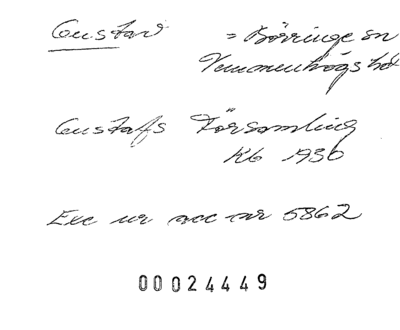 Gustav = Börringe sn
Vemmenhögs hd
Gustafs Församling
Kb 1930
Exc ur acc nr 5862
00024449